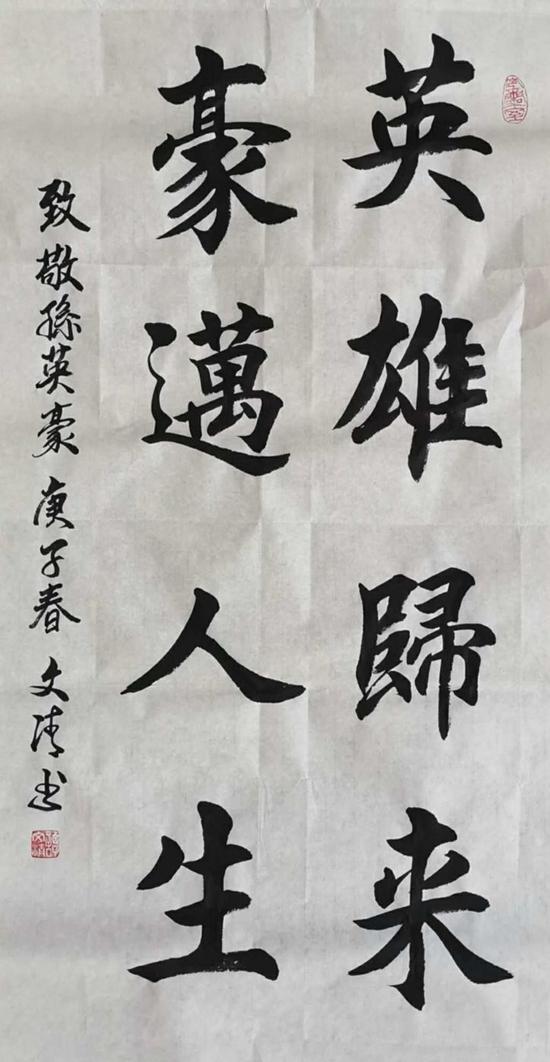 英雄歸来
豪邁人生
致敬孫英豪 庚子春 文清书